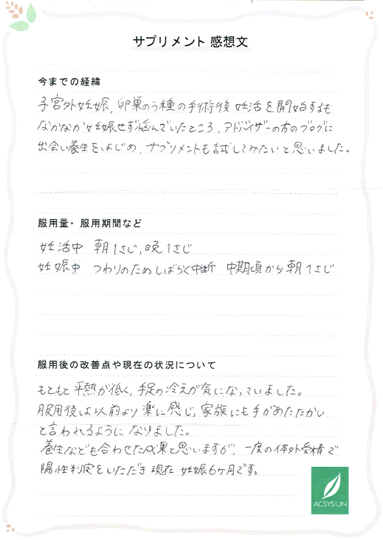 サプリメント 感想文
今までの経緯
子宮外妊娠、卵巣のう種の手術後 妊活を開始するも
なかなか妊娠せず悩んでいたところ、アドバイザーの方のブログに
出会い養生をはじめ、サプリメントも試してみたいと思いました。
服用量・服用期間など
妊活中 朝1さじ、晩1さじ
妊娠中 つわりのためしばらく中断 中期頃から朝1さじ
服用後の改善点や現在の状況について
もともと平熱が低く、手足の冷えが気になっていました。
服用後は以前より楽に感じ、家族にも手があたたかい
と言われるようになりました。
養生なども合わせた成果と思いますが、一度の体外受精で
陽性判定をいただき現在 妊娠6ヶ月です。
ACSYSUN